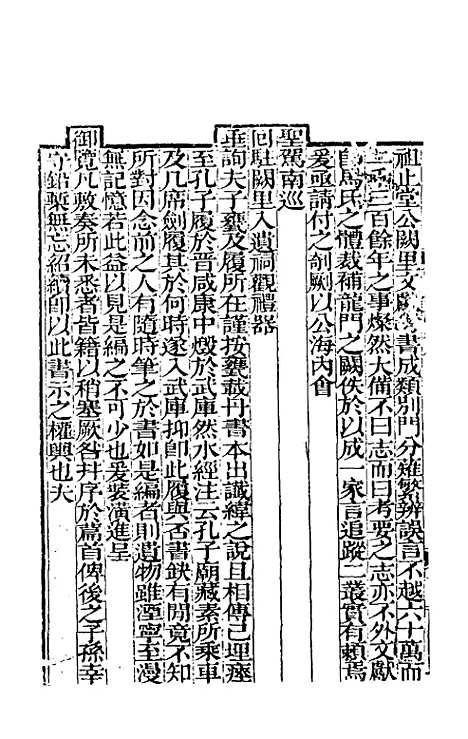 祖止堂公闕里文獻考書成類別門分薙繁辨誤言不越六十萬而
二千三百餘年之事燦然大備不曰志而曰考要之志亦不外文獻
馬氏之體裁補龍門之闕佚於以成一家言追蹤二叢實有賴焉
爰亟請付之剞劂以公海內會
聖駕南巡
回駐闕里入遺祠觀禮器
垂詢夫子甕及履所在謹按甕載丹書本出讖緯之說且相傳已埋瘞
至孔子履於晋咸康中燬於武庫然水經注云孔子廟藏素所乘車
及几席劍履其於何時遂入武庫抑卽此履與否書鈌有閒竟不知
所對因念前之人有隨時筆之於書如是編者則遺物雖湮寧至漫
無記憶若此益以見是編之不可少也爰裝潢進呈
御覽凡敷奏所未悉者皆籍以稍塞厥咎幷序於篇首俾後之子孫幸
鉛槧無忘紹續卽以此書示之權輿也夫